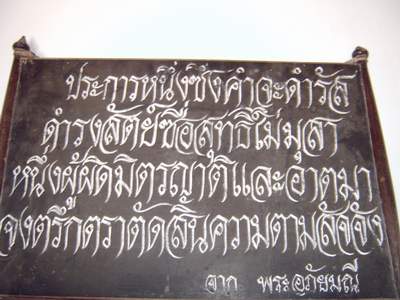 ประการหนึ่งซึ่งคำจะดำรัส
ดำรงสัตย์ซื่อสุทธิ์ไม่มุสา
หนึ่งผู้ผิดมิตรญาติและอาตมา
จงตรึกตราตัดสินความตามสัจจัง
จาก พระอภัยมณี